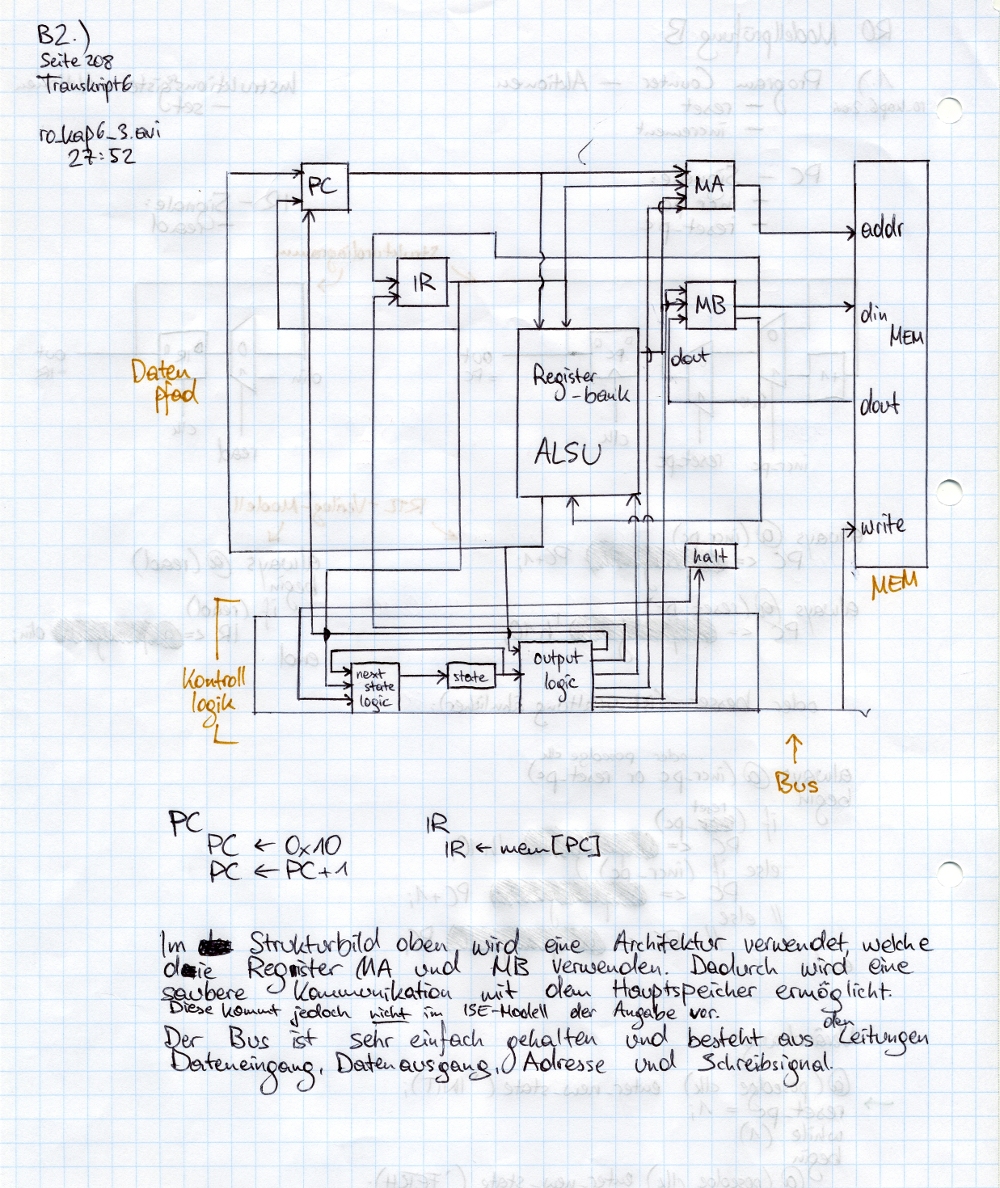 B2.)
Seite 208
Transkript6
ro_kap6_3.avi
27:52
PC
MA
addr
IR
MB
din
MEM
dout
dout
Daten
pfad
Register
-bank
ALSU
write
halt
MEM
Kontroll
logik
next
state
logic
state
output
logic
Bus
PC
PC ← 0x10
PC ← PC+1
IR
IR ← mem[PC]
Im Strukturbild oben wird eine Architektur verwendet, welche
die Register MA und MB verwenden. Dadurch wird eine
saubere Kommunikation mit dem Hauptspeicher ermöglicht.
Diese kommt jedoch nicht im ISE-Modell der Angabe vor.
Der Bus ist sehr einfach gehalten und besteht aus den Leitungen
Dateneingang, Datenausgang, Adresse und Schreibsignal.